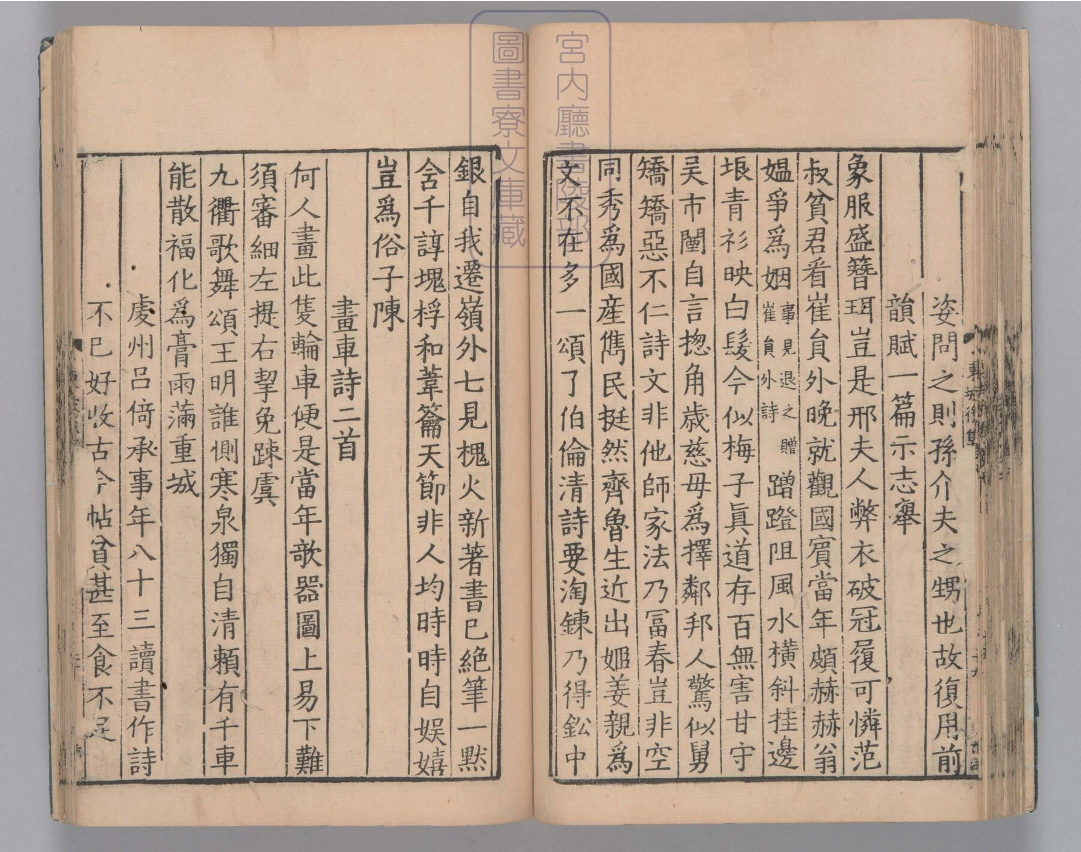 姿問之則孫介夫之甥也故復用前
韻賦一篇示志舉
象服盛簪珥豈是邢夫人弊衣破冠履可憐范
叔貧君看崔貟外晚就觀國賓當年頗赫赫翁
媪爭爲姻事見退之贈崔貟外詩蹭蹬阻風水橫斜挂邊
垠青衫映白髮今似梅子眞道存百無害甘守
吴市闉自言揔角歳慈母爲擇鄰邦人驚似舅
矯矯惡不仁詩文非他師家法乃冨春豈非空
同秀爲國産雋民挺然齊魯生近出姬姜親爲
文不在多一頌了伯倫清詩要淘鍊乃得鈆中
銀自我遷嶺外七見槐火新著書已絶筆一默
含千諄塊桴和葦籥天節非人均時時自娛嬉
豈爲俗子陳
畫車詩二首
何人畫此隻輪車便是當年欹器圖上易下難
須審細左提右挈免踈虞
九衢歌舞頌王明誰惻寒泉獨自清頼有千車
能散福化爲膏雨滿重城
虔州呂倚承事年八十三讀書作詩
不已好收古今帖貧甚至食不足
宮内廳書陵部
圖書寮文庫藏